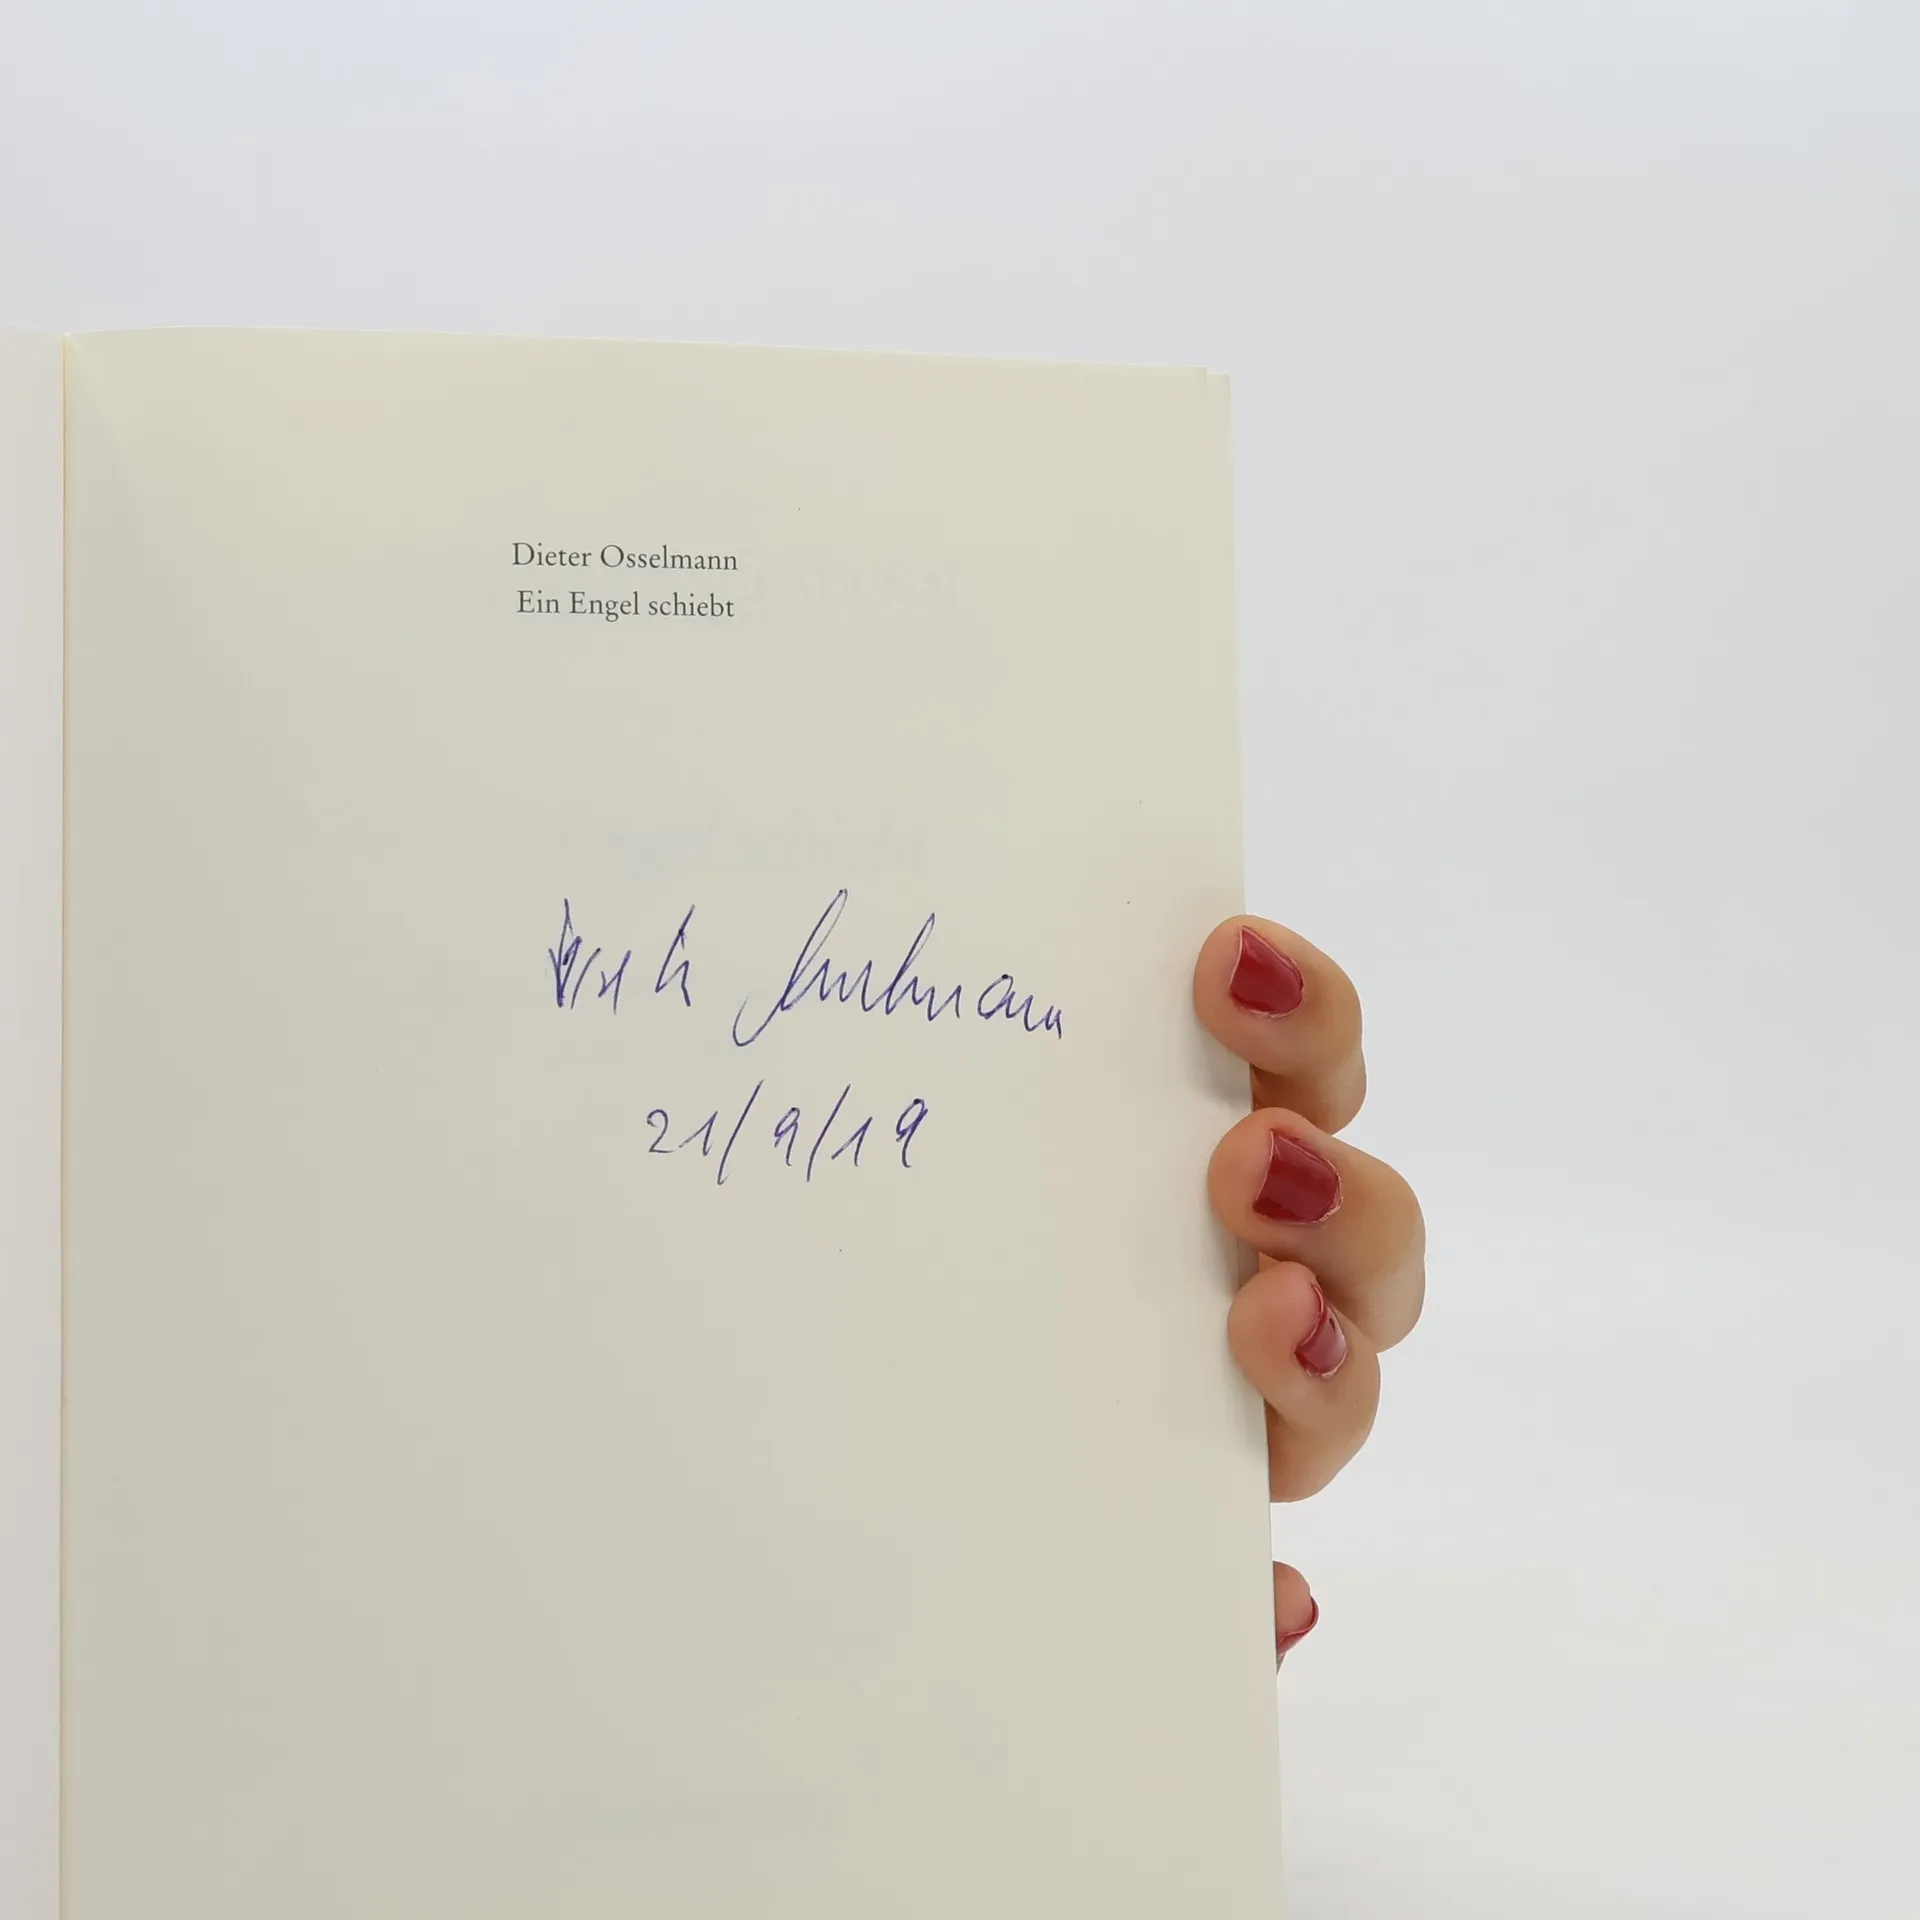 Dieter Osselmann
Ein Engel schiebt
21/9/19